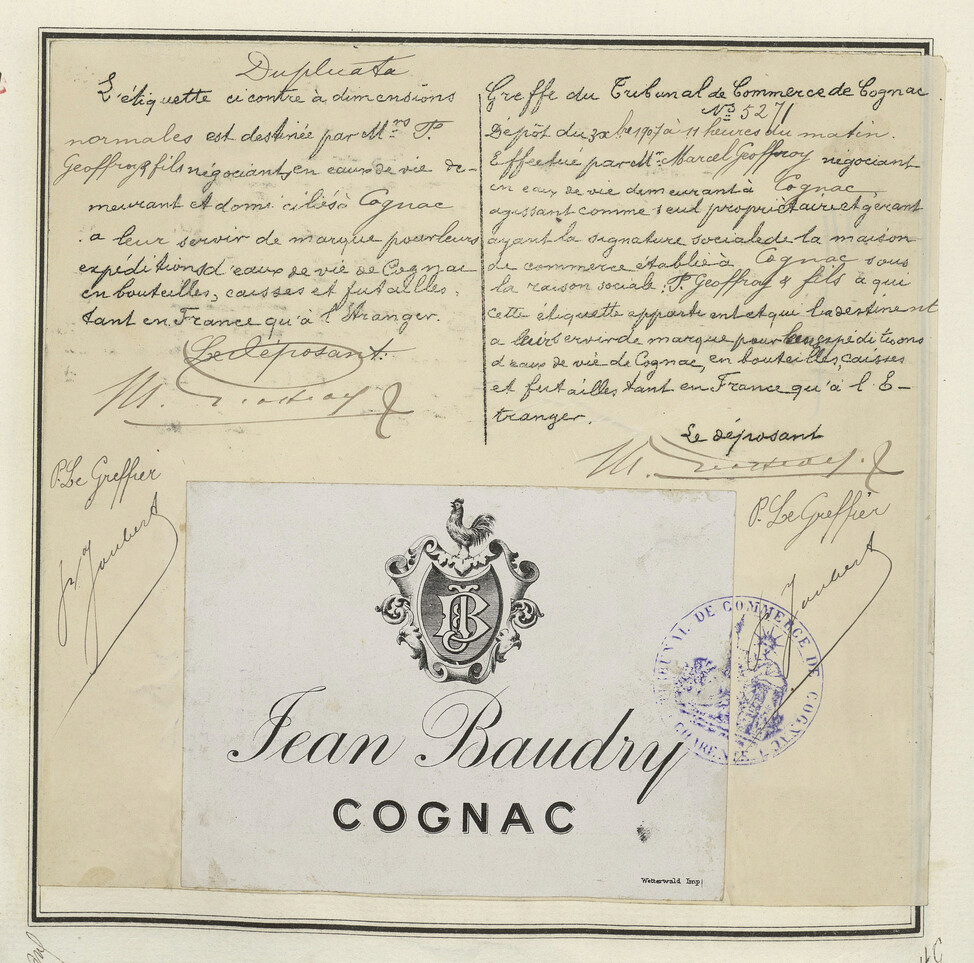 Duplicata
L'étiquette ci contre à dimensions
normales est destinée par Mrs P.
Geoffroy & fils négociants en eaux de vie de-
meurant et domiciliés à Cognac
a leur servir de marque pour leurs
expéditions d'eaux de vie de Cognac
en bouteilles, caisses et futailles,
tant en France qu'à l'Etranger.
Le déposant
P. Le Greffier
Joubert
Greffe du Tribunal de Commerce de Cognac
No 5271
Dépôt du 1907 à 11 heures du matin.
Effectué par Mr. Marcel Geoffroy négociant
en eaux de vie demeurant à Cognac
agissant comme seul propriétaire et gérant
ayant la signature sociale de la maison
de commerce établie à Cognac sous
la raison sociale. P. Geoffroy & fils à qui
cette étiquette appartient et qui la destinent
a leur servir de marque pour leurs expéditions
d'eaux de vie de Cognac, en bouteilles, caisses
et futailles tant en France qu'à l'E-
tranger.
Le déposant
P. Le Greffier
Joubert
JB
Jean Baudry
COGNAC
Wetterwald Imp
TRIBUNAL DE COMMERCE DE COGNAC
CHARENTE